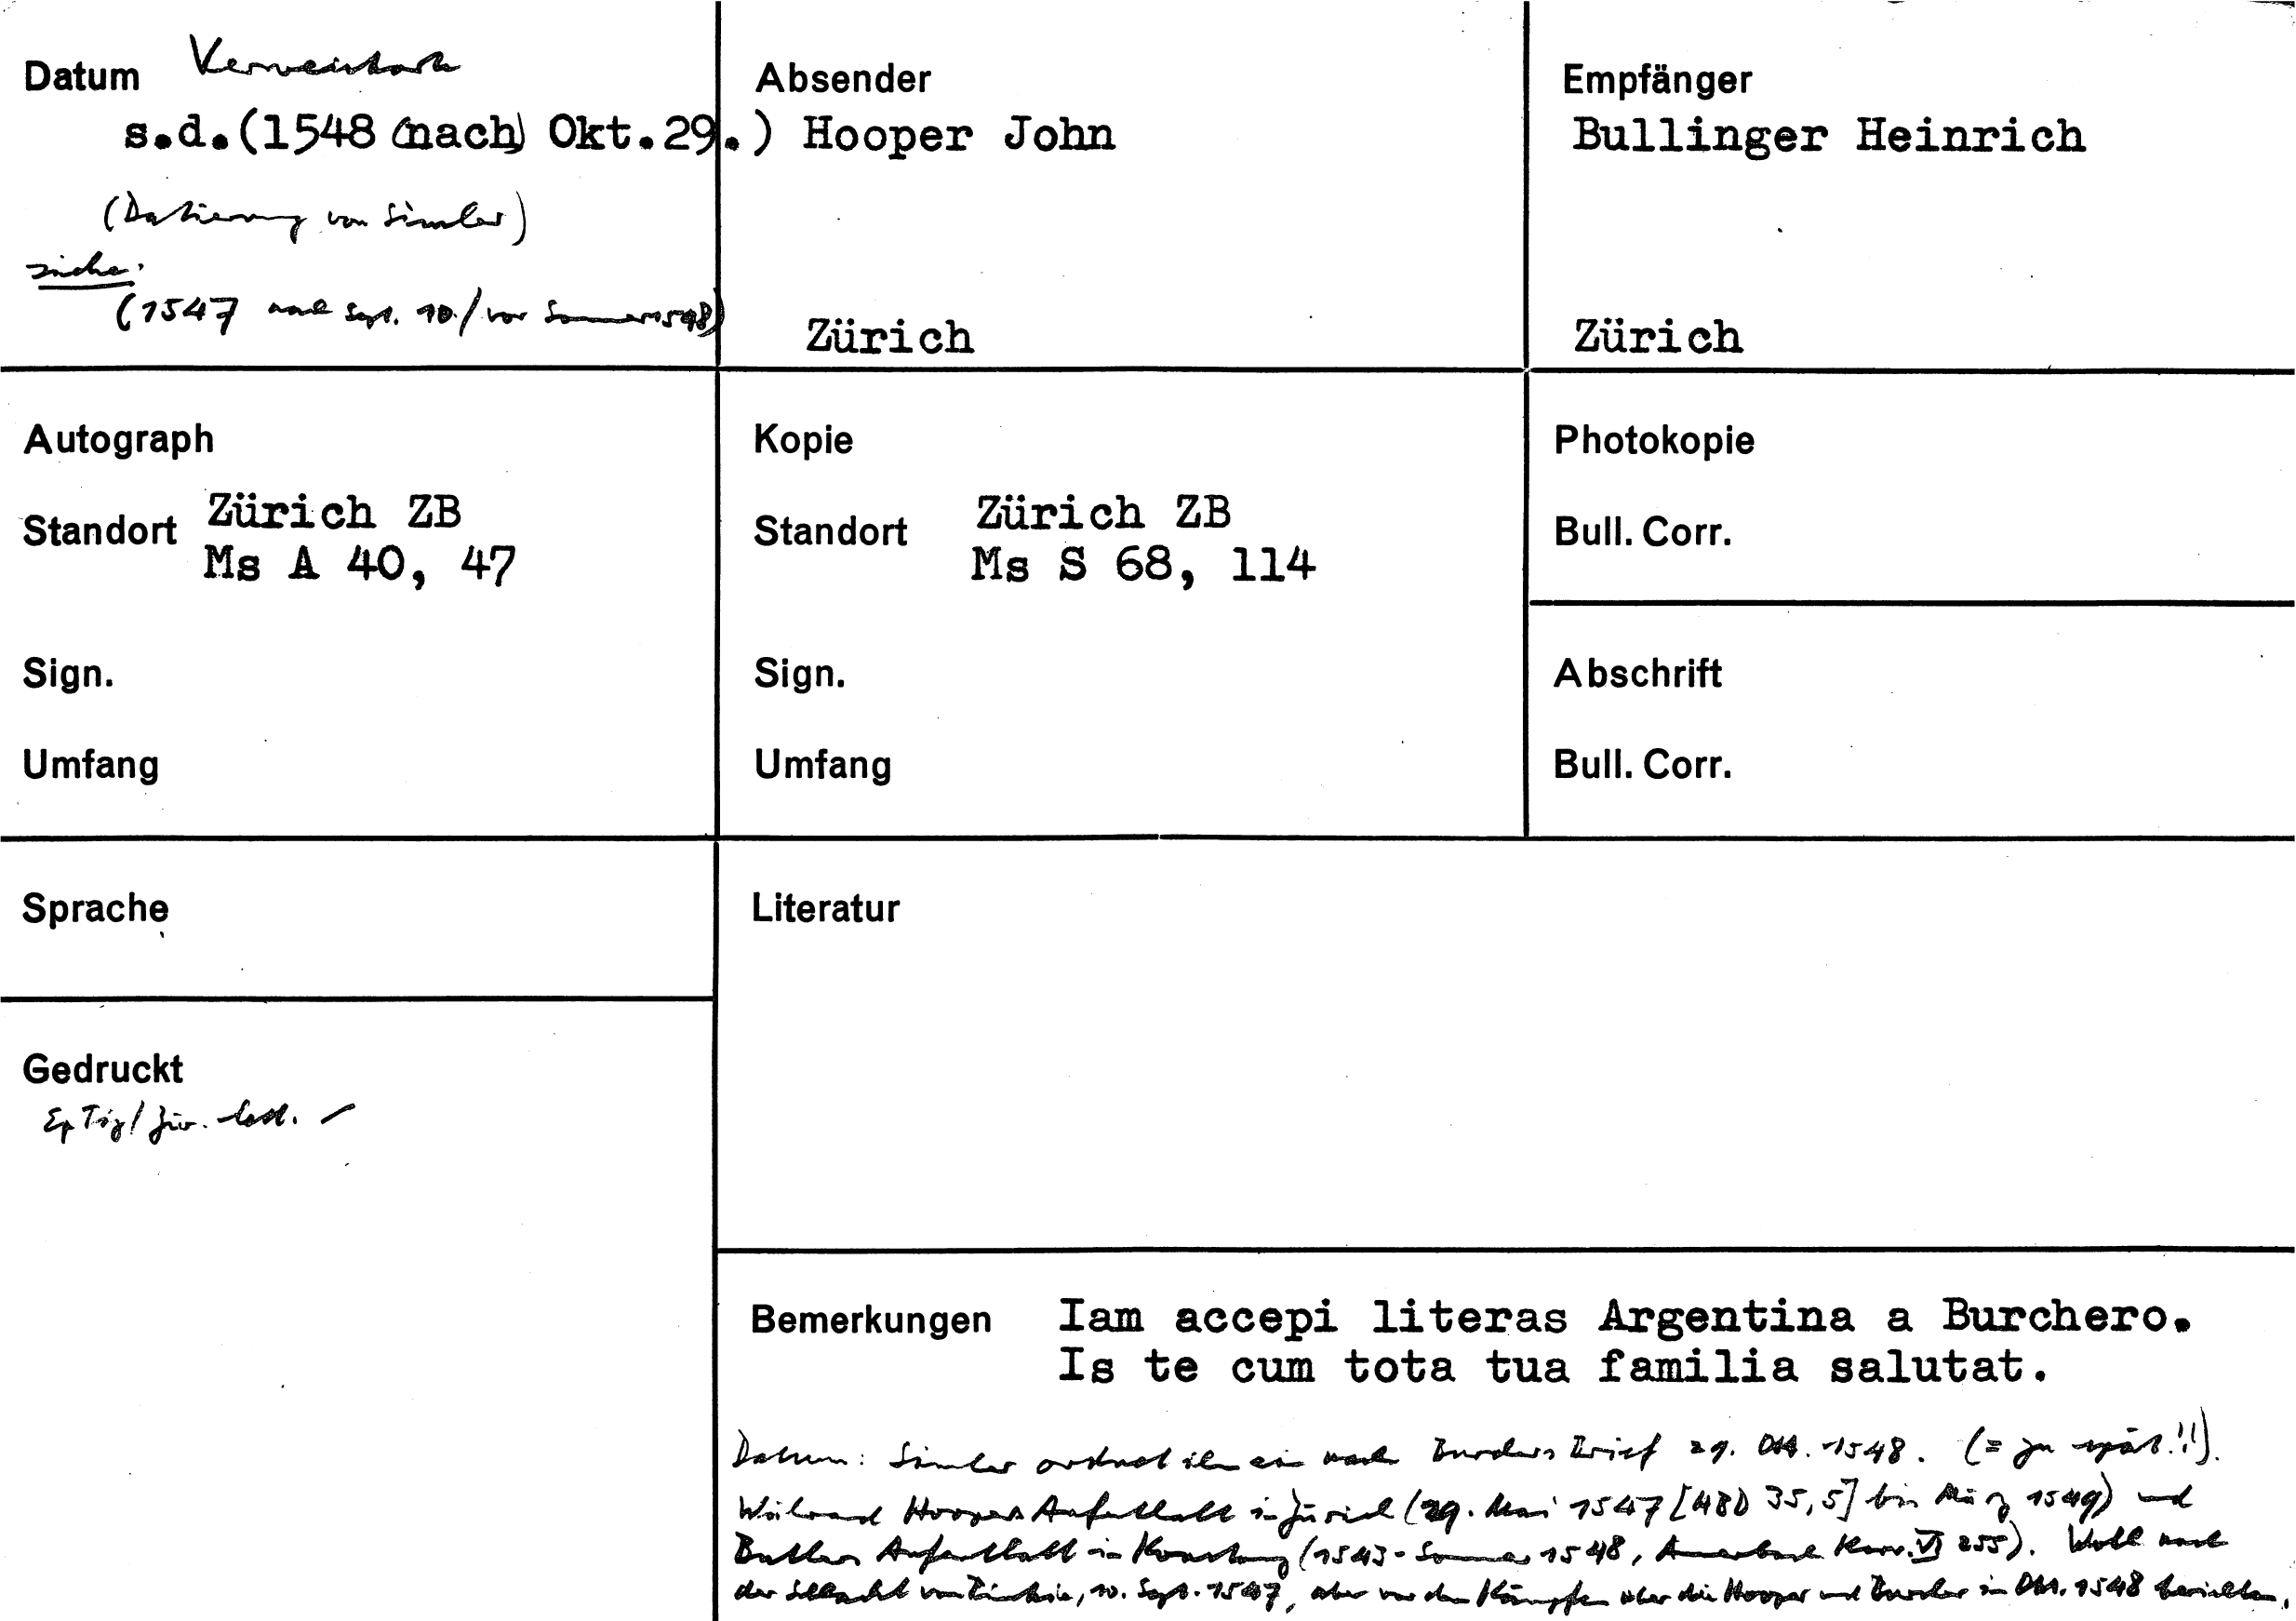 Datum
s.d.(1548 (nach) Okt.29.)
(Datierung von Simler)
siehe:
(1547 nach Sept. 10./ vor Sommer 1548)
Absender
Hooper John
Zürich
Empfänger
Bullinger Heinrich
Zürich
Autograph
Standort Zürich ZB
Ms A 40, 47
Sign.
Umfang
Kopie
Standort Zürich ZB
Ms S 68, 114
Sign.
Umfang
Photokopie
Bull. Corr.
Abschrift
Bull. Corr.
Sprache
Literatur
Gedruckt
Ep Tig /
Bemerkungen Iam accepi literas Argentina a Burchero.
Is te cum tota tua familia salutat.
Datum: Simler ordnet ihn ein nach Burchers Brief 29. Okt. 1548. (= zu spät!!).
Während Hoopers Aufenthalt in Zürich (29. Mai 1547 [HBD 35,5] bis März 1549) und
Butlers Aufenthalt in Konstanz (1543 - Sommer 1548, Amerbach Korr. VI 255). Wohl nach
der Schlacht von Pinkie, 10. Sept. 1547, aber vor den Kämpfen über die Hooper und Burcher in Okt. 1548 berichten.